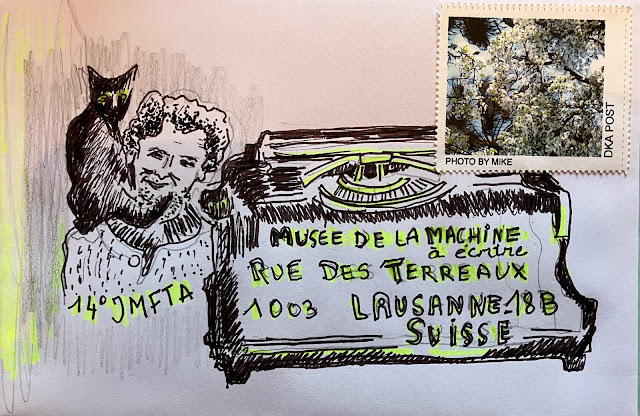 PHOTO BY MIKE
DKA POST
MUSEE DE LA MACHINE
à écrire
RUE DES TERREAUX
14° JMFTA
1003 LAUSANNE-18B
SUISSE